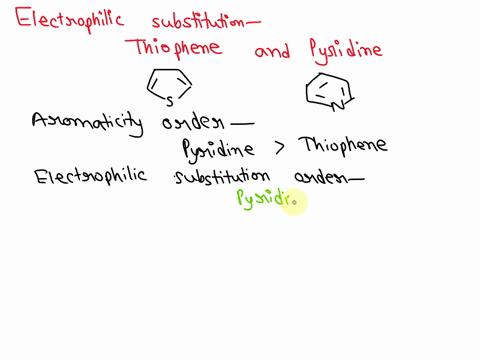 Electrophilic substitution—
Thiophene and Pyridine
S
N
Aromaticity order—
Pyridine > Thiophene
Electrophilic substitution order—
Pyridi